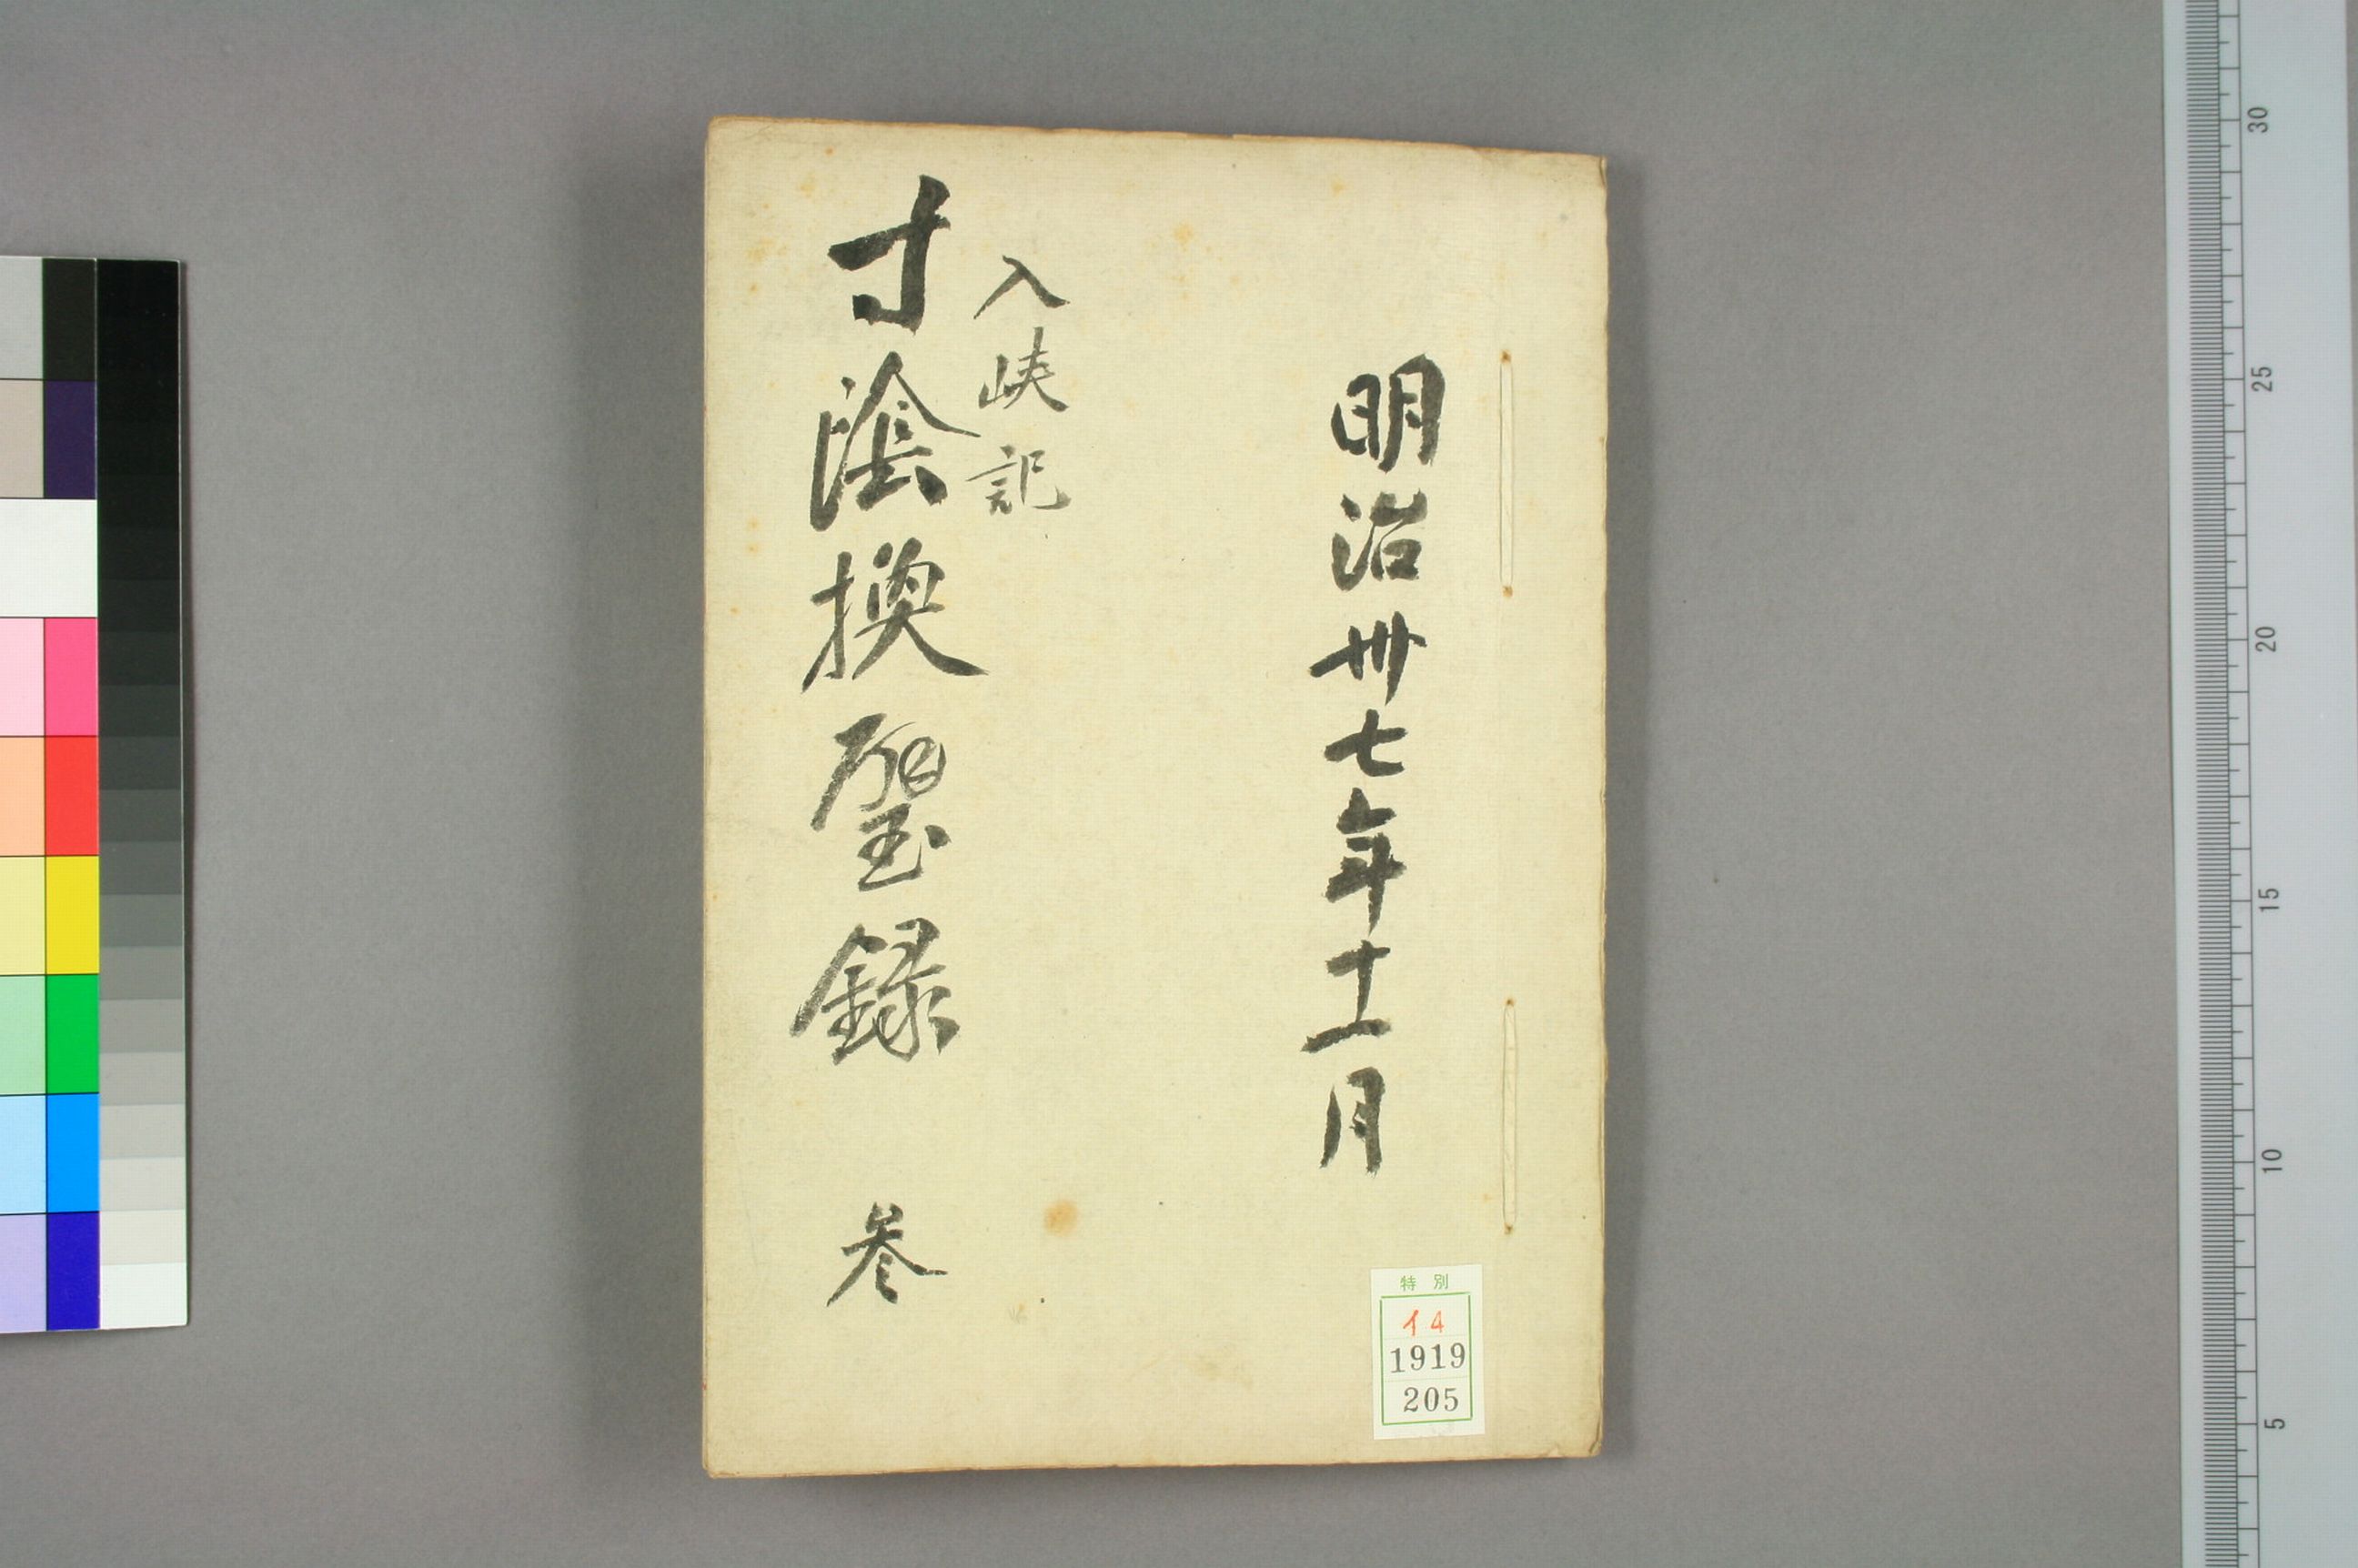 明治卅七年十一月
入峡記
寸陰換璧録 参
特別
イ4
1919
205
30
25
20
15
10
5